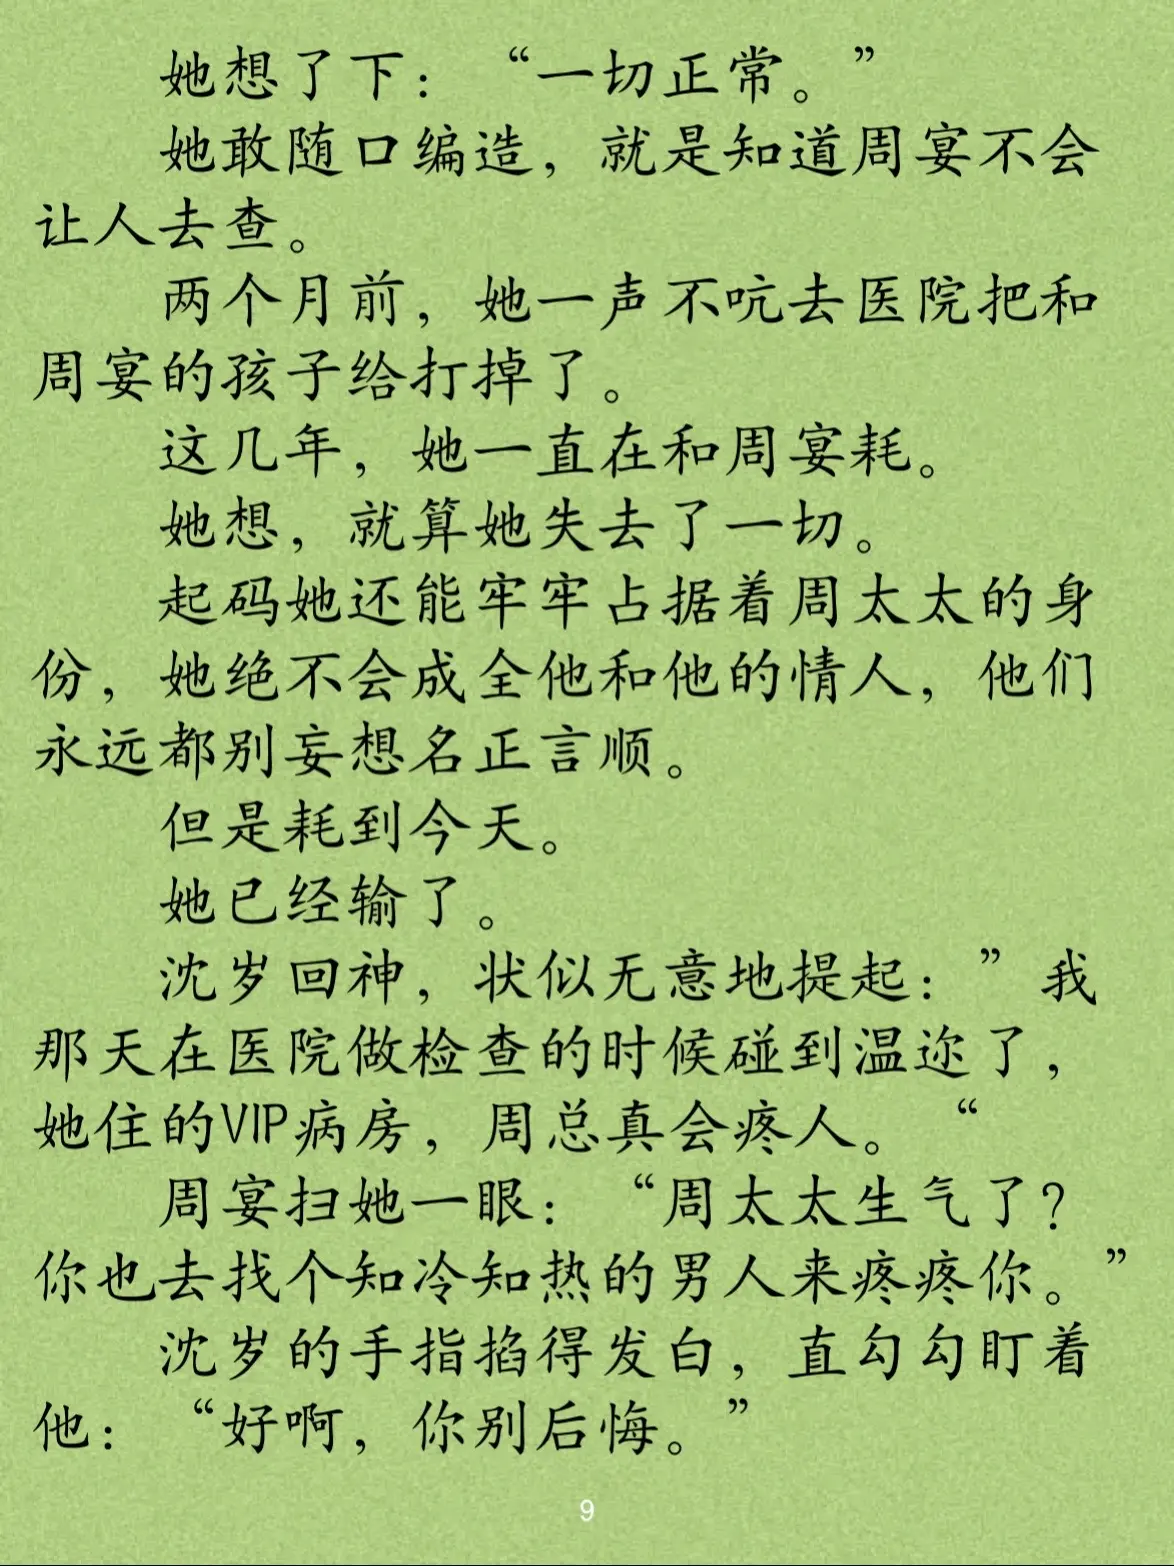 她想了下：“一切正常。”
她敢随口编造，就是知道周宴不会
让人去查。
两个月前，她一声不吭去医院把和
周宴的孩子给打掉了。
这几年，她一直在和周宴耗。
她想，就算她失去了一切。
起码她还能牢牢占据着周太太的身
份，她绝不会成全他和他的情人，他们
永远都别妄想名正言顺。
但是耗到今天。
她已经输了。
沈岁回神，状似无意地提起：”我
那天在医院做检查的时候碰到温迩了，
她住的VIP病房，周总真会疼人。“
周宴扫她一眼：“周太太生气了？
你也去找个知冷知热的男人来疼疼你。”
沈岁的手指掐得发白，直勾勾盯着
他：“好啊，你别后悔。”
9